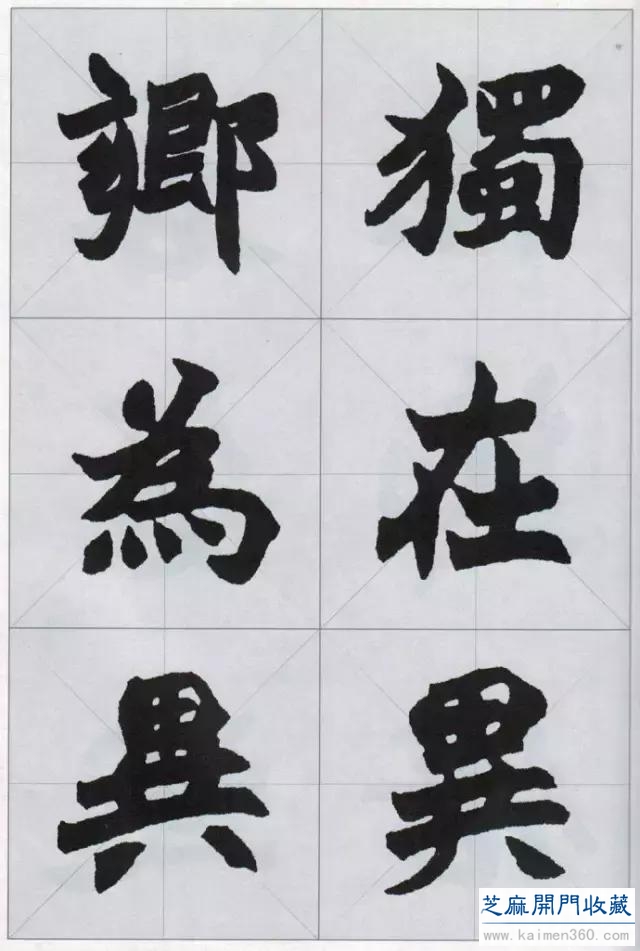 獨在異
鄉為異
芝麻開門收藏
www.kaimen360.com